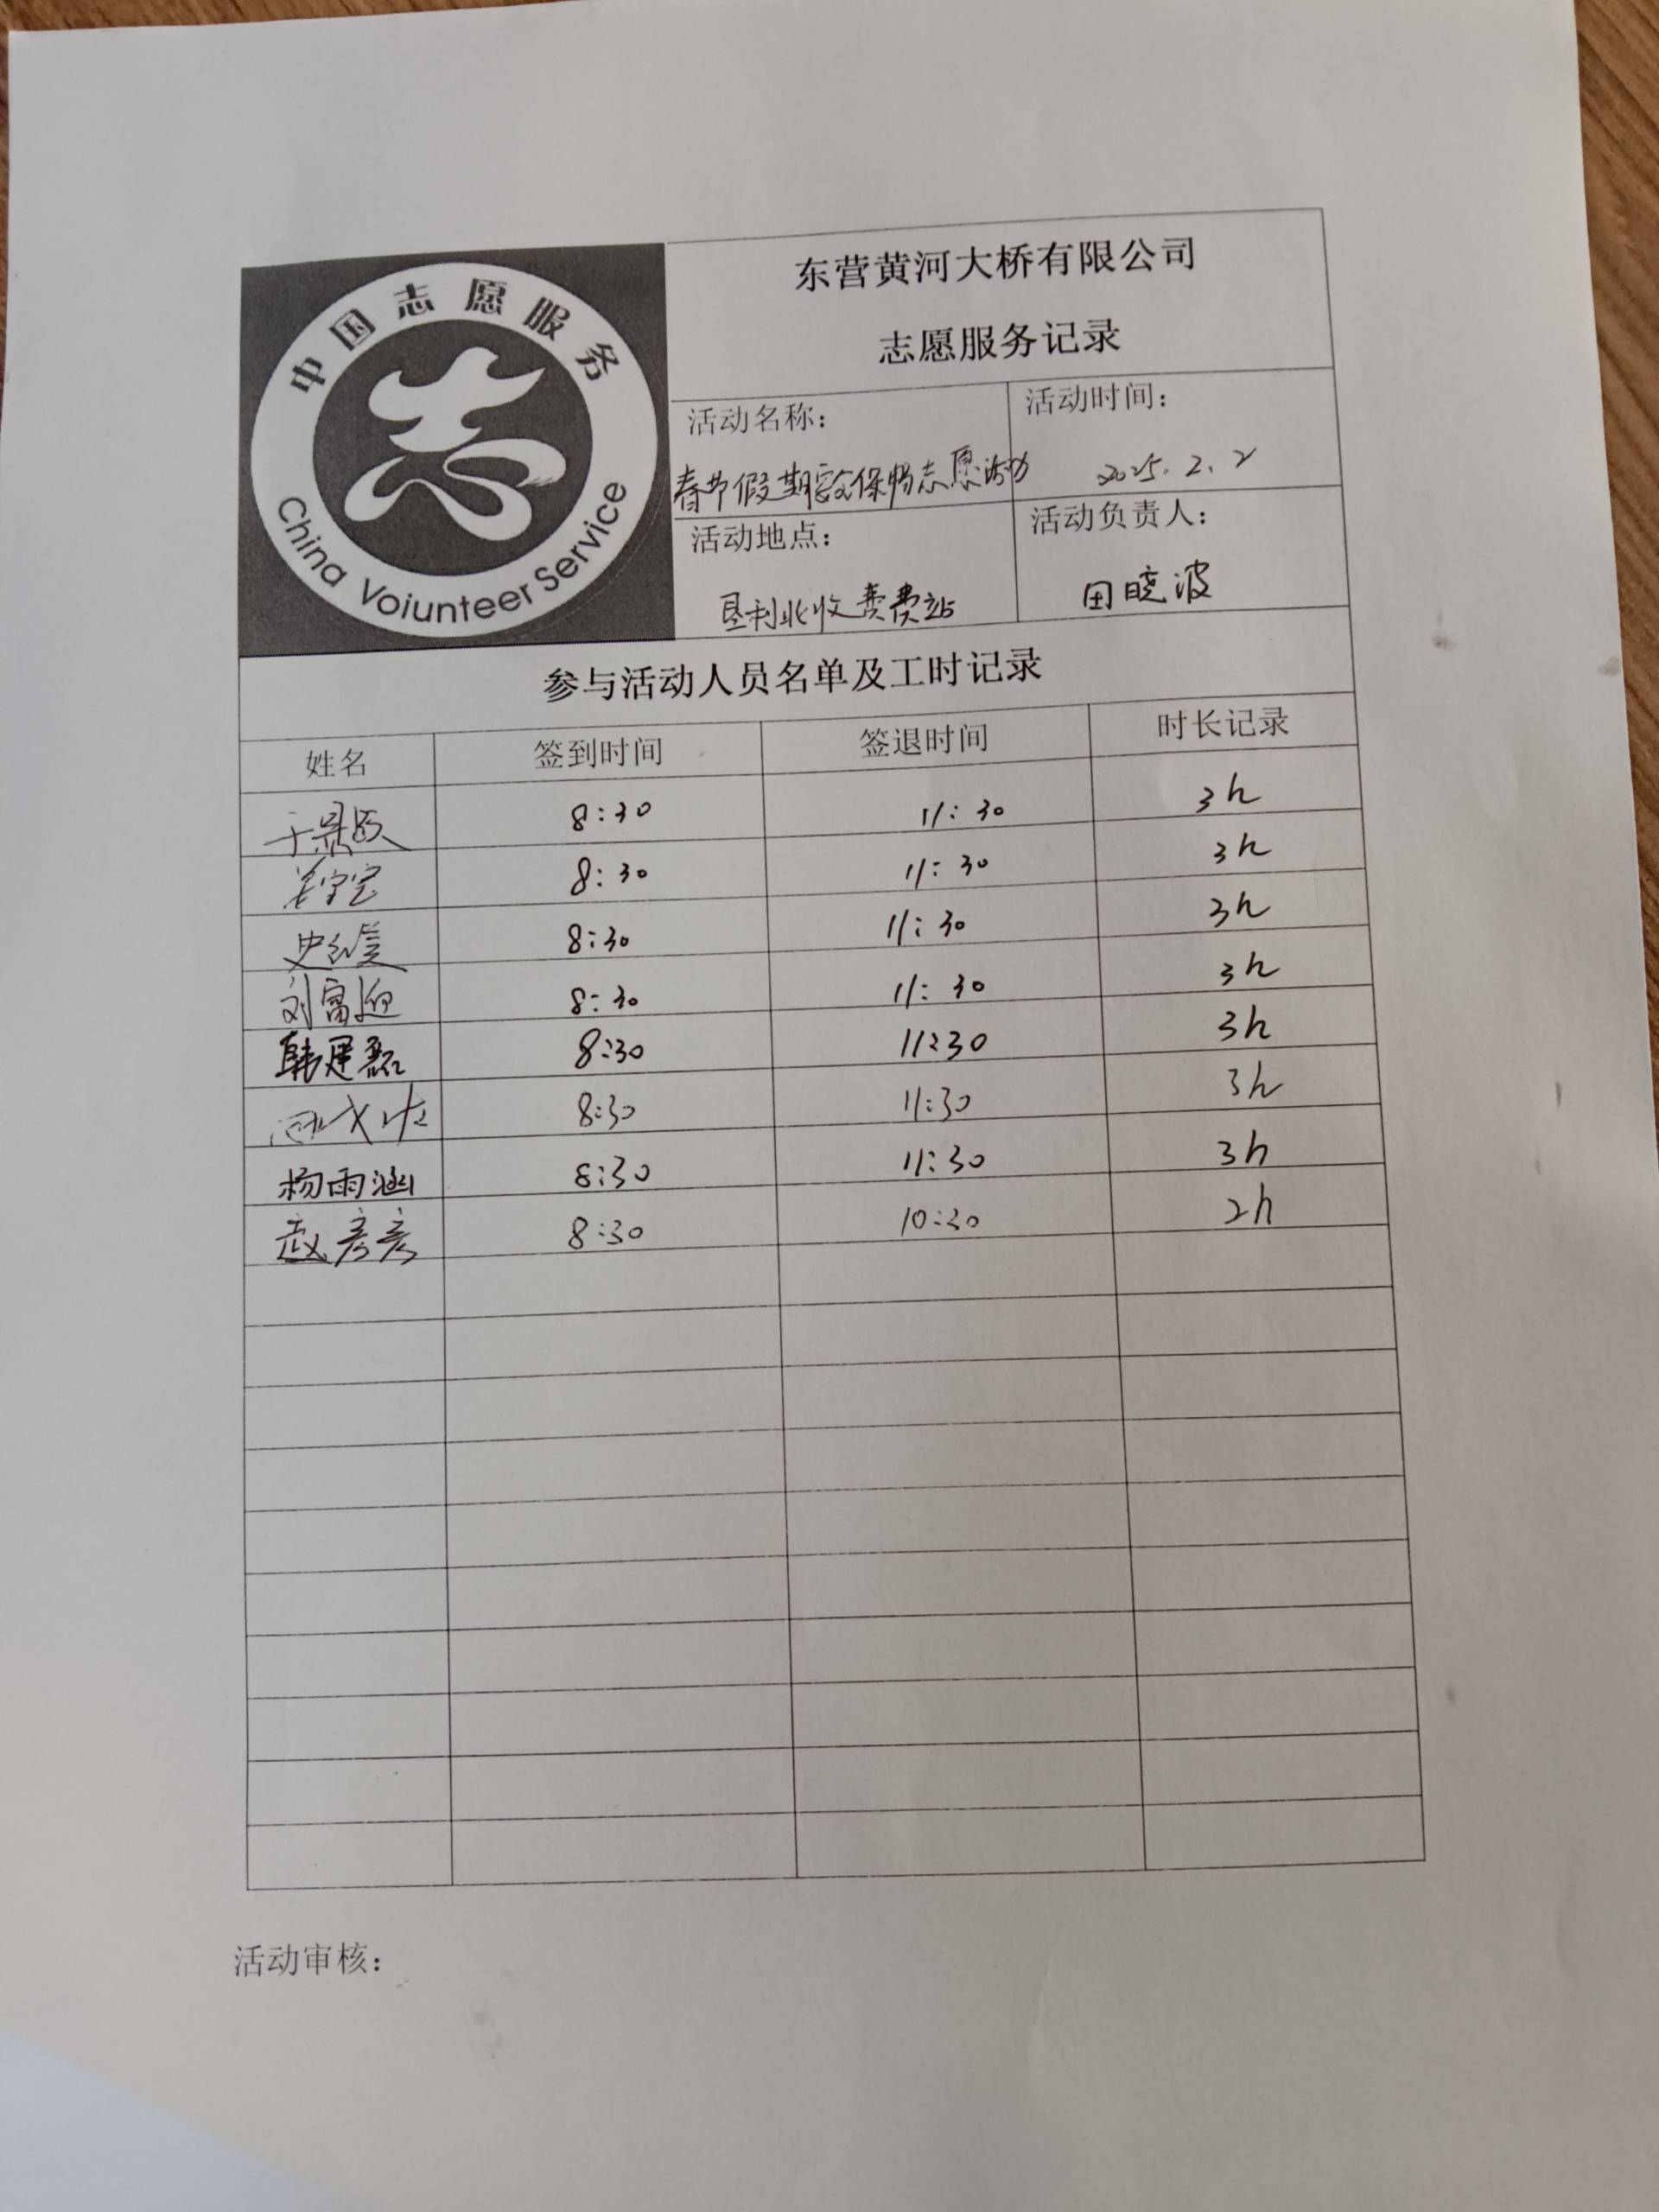 中国志愿服务
China Voiunteer Service
东营黄河大桥有限公司
志愿服务记录
活动名称：
活动时间：
春节假期安全保畅志愿活动
2025.2.2
活动地点：
活动负责人：
垦利北收费费站
田晓波
参与活动人员名单及工时记录
姓名 签到时间 签退时间 时长记录
8:30 11:30 3h
8:30 11:30 3h
史 8:30 11:30 3h
刘富迎 8:30 11:30 3h
韩建磊 8:30 11:30 3h
8:30 11:30 3h
杨雨涵 8:30 11:30 3h
赵彦彦 8:30 10:30 2h
活动审核：